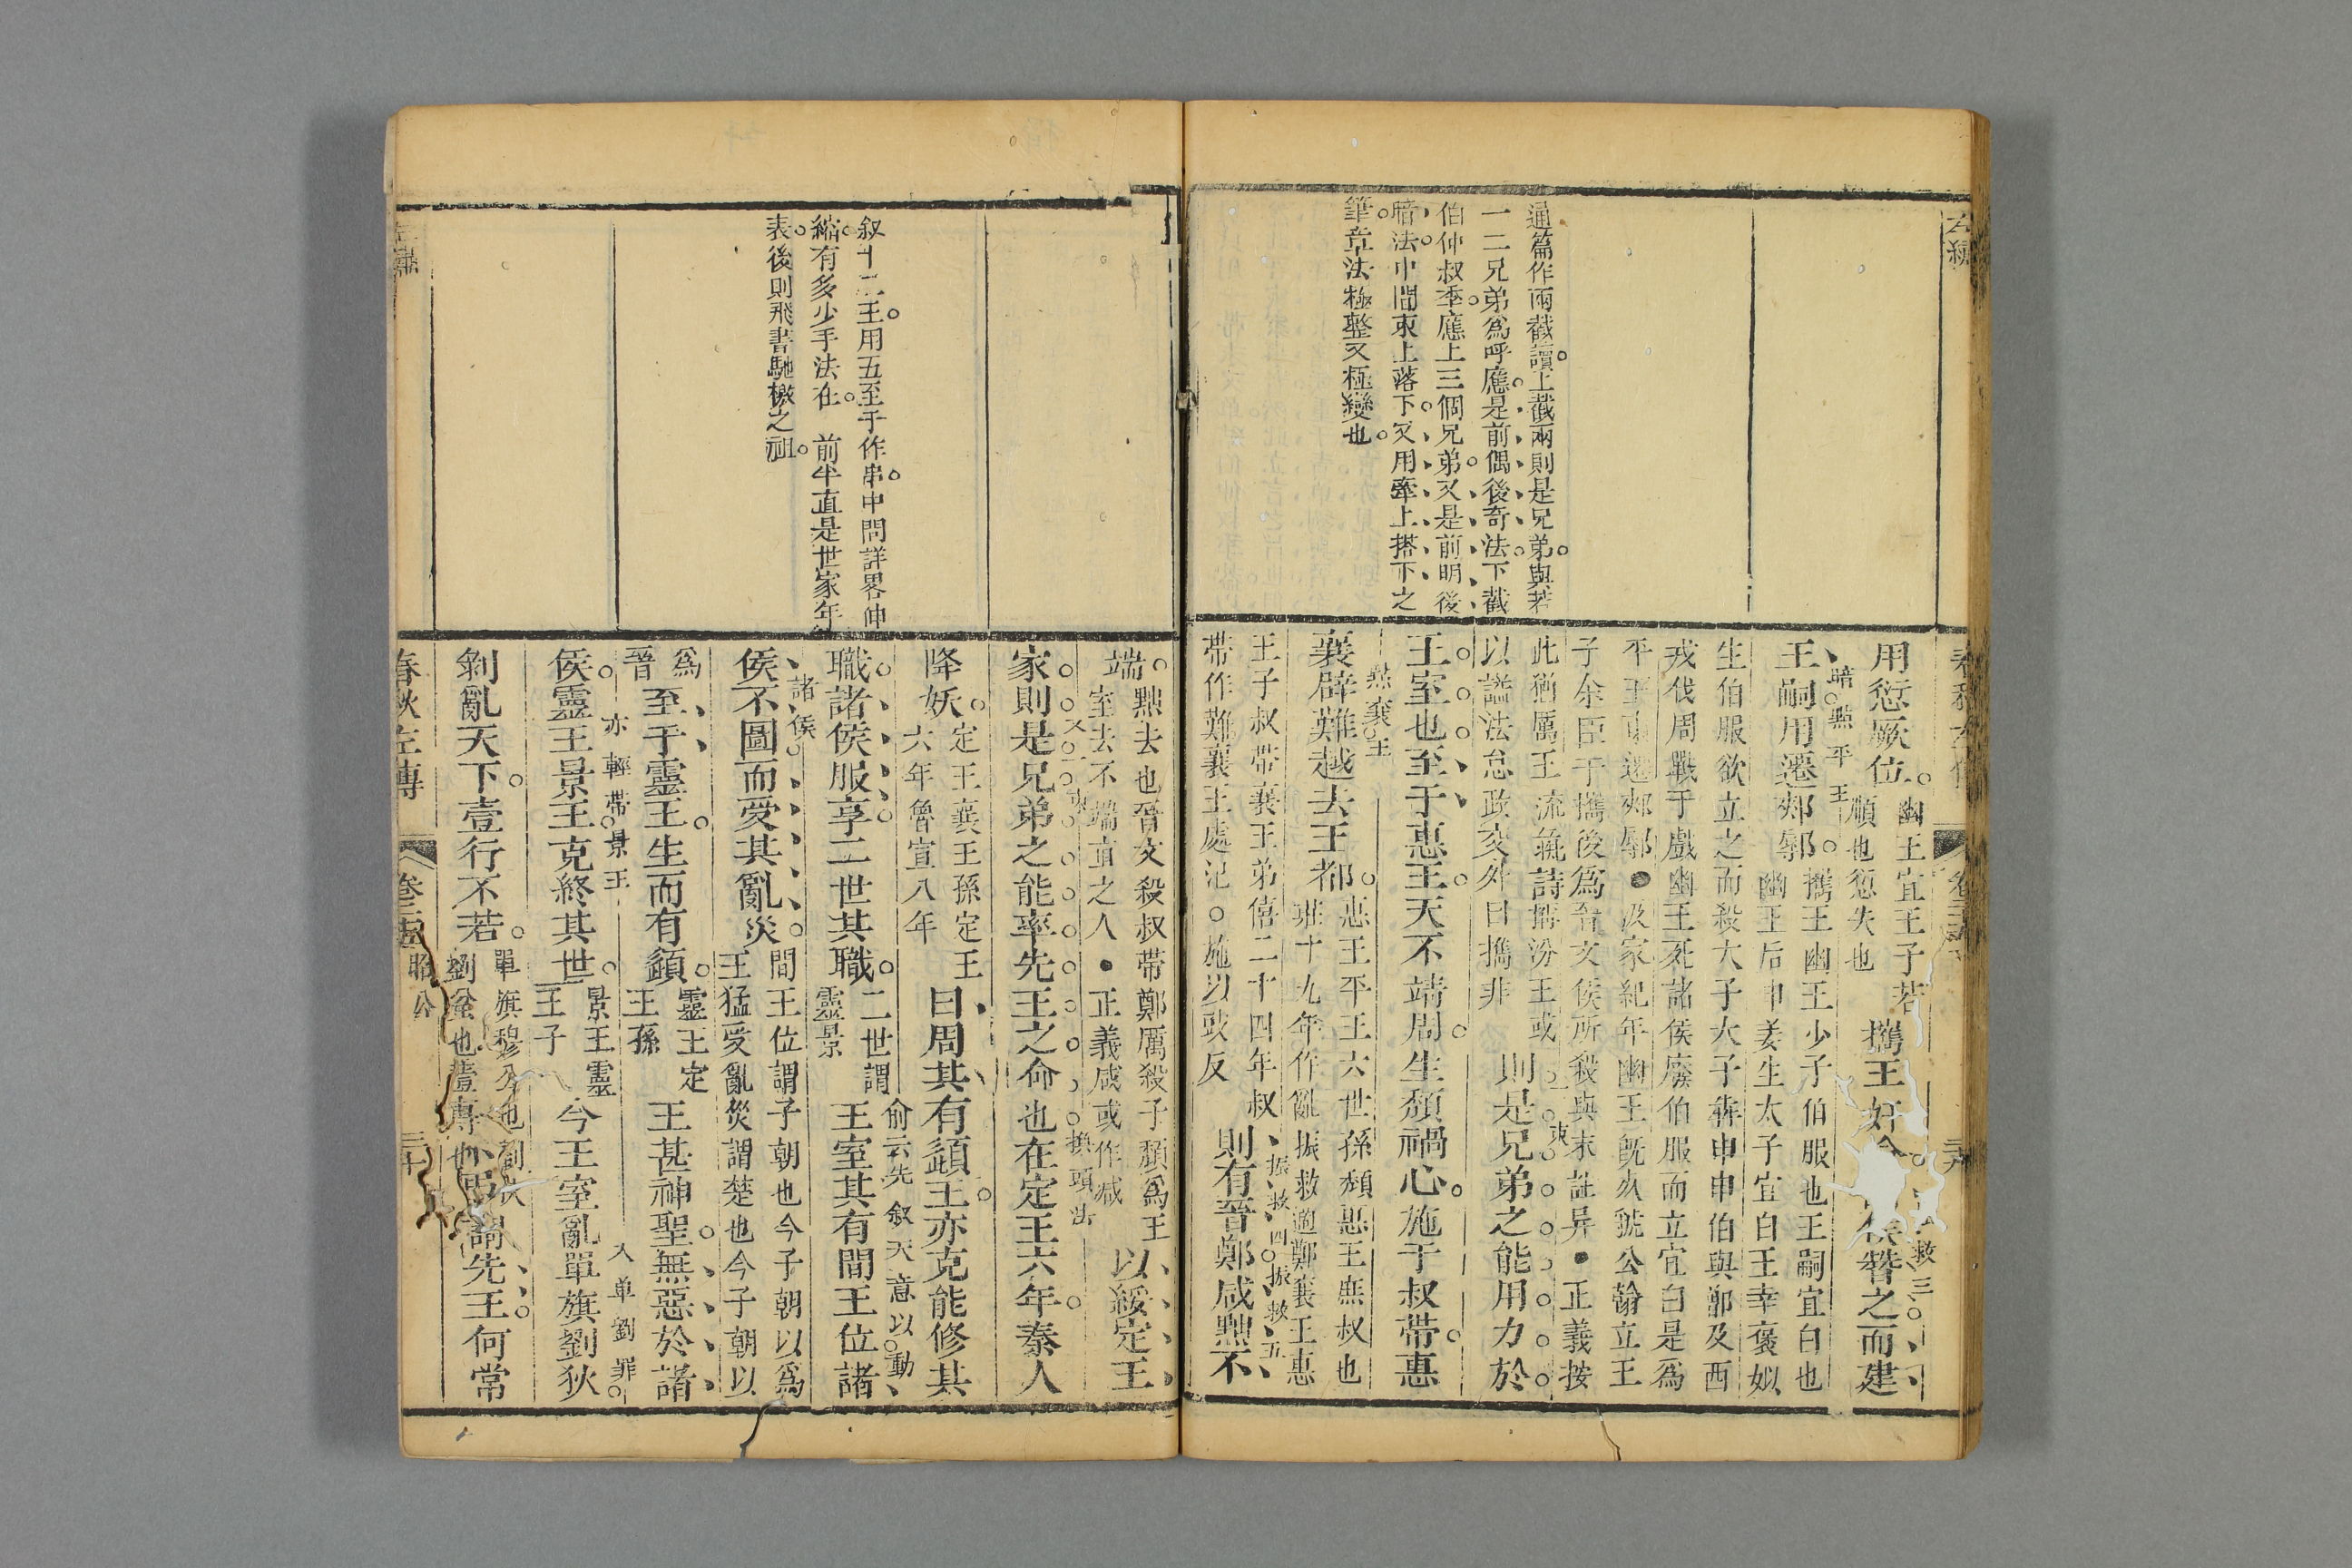 左繡
春秋左傳
通篇作兩截讀上截兩則是兄弟與若
一二兄弟爲呼應是前偶後奇法下截
伯仲叔季應上三個兄弟又是前明後
暗法中間束上落下又用牽上搭下之
筆章法極整又極變也
用愆厥位幽王宜王子若
順也愆失也攜王奸命侯替之而建
救三
王嗣用遷郟鄏攜王幽王少子伯服也王嗣宜臼也
暗點平王
幽王后申姜生太子宜臼王幸褒姒
生伯服欲立之而殺大子大子奔申申伯與鄫及西
戎伐周戰于戲幽王死諸侯廢伯服而立宜臼是爲
平王東遷郟鄏●汲家紀年幽王旣立虢公翰立王
子余臣于攜後爲晉文侯所殺與末註异●正義按
此猶厲王流彘詩稱汾王或
以謚法怠政交外曰攜非則是兄弟之能用力於
一束
王室也至于惠王天不靖周生頹禍心施于叔帶惠
襄辟難越去王都惠王平王六世孫頹惠王庶叔也
點襄王
莊十九年作亂振救適鄭襄王惠
王子叔帶襄王弟僖二十四年叔
帶作難襄王處氾○施以豉反則有晉鄭咸黜不
振救四振救五
端黜去也晉文殺叔帶鄭厲殺子頹爲王
室去不端直之人●正義咸或作減以綏定王
家則是兄弟之能率先王之命也在定王六年秦人
又一束
換頭法
降妖定王襄王孫定王
六年魯宣八年曰周其有頾王亦克能修其
職諸侯服享二世其職二世謂
靈景王室其有間王位諸
俞云先叙天意以動
諸侯
侯不圖而受其亂災間王位謂子朝也今子朝以爲
王猛受亂災謂楚也今子朝以
爲
晉至于靈王生而有頾靈王定
王孫王甚神聖無惡於諸
侯靈王景王克終其世景王靈
王子今王室亂單旗劉狄
亦輕帶景王
入单劉罪
剝亂天下壹行不若單旗穆公也劉狄
劉蚠也壹專也謂先王何常
叙十二王用五至于作串中間詳畧伸
縮有多少手法在 前半直是世家年
表後則飛書馳檄之祖
春秋左傳
昭公
三十